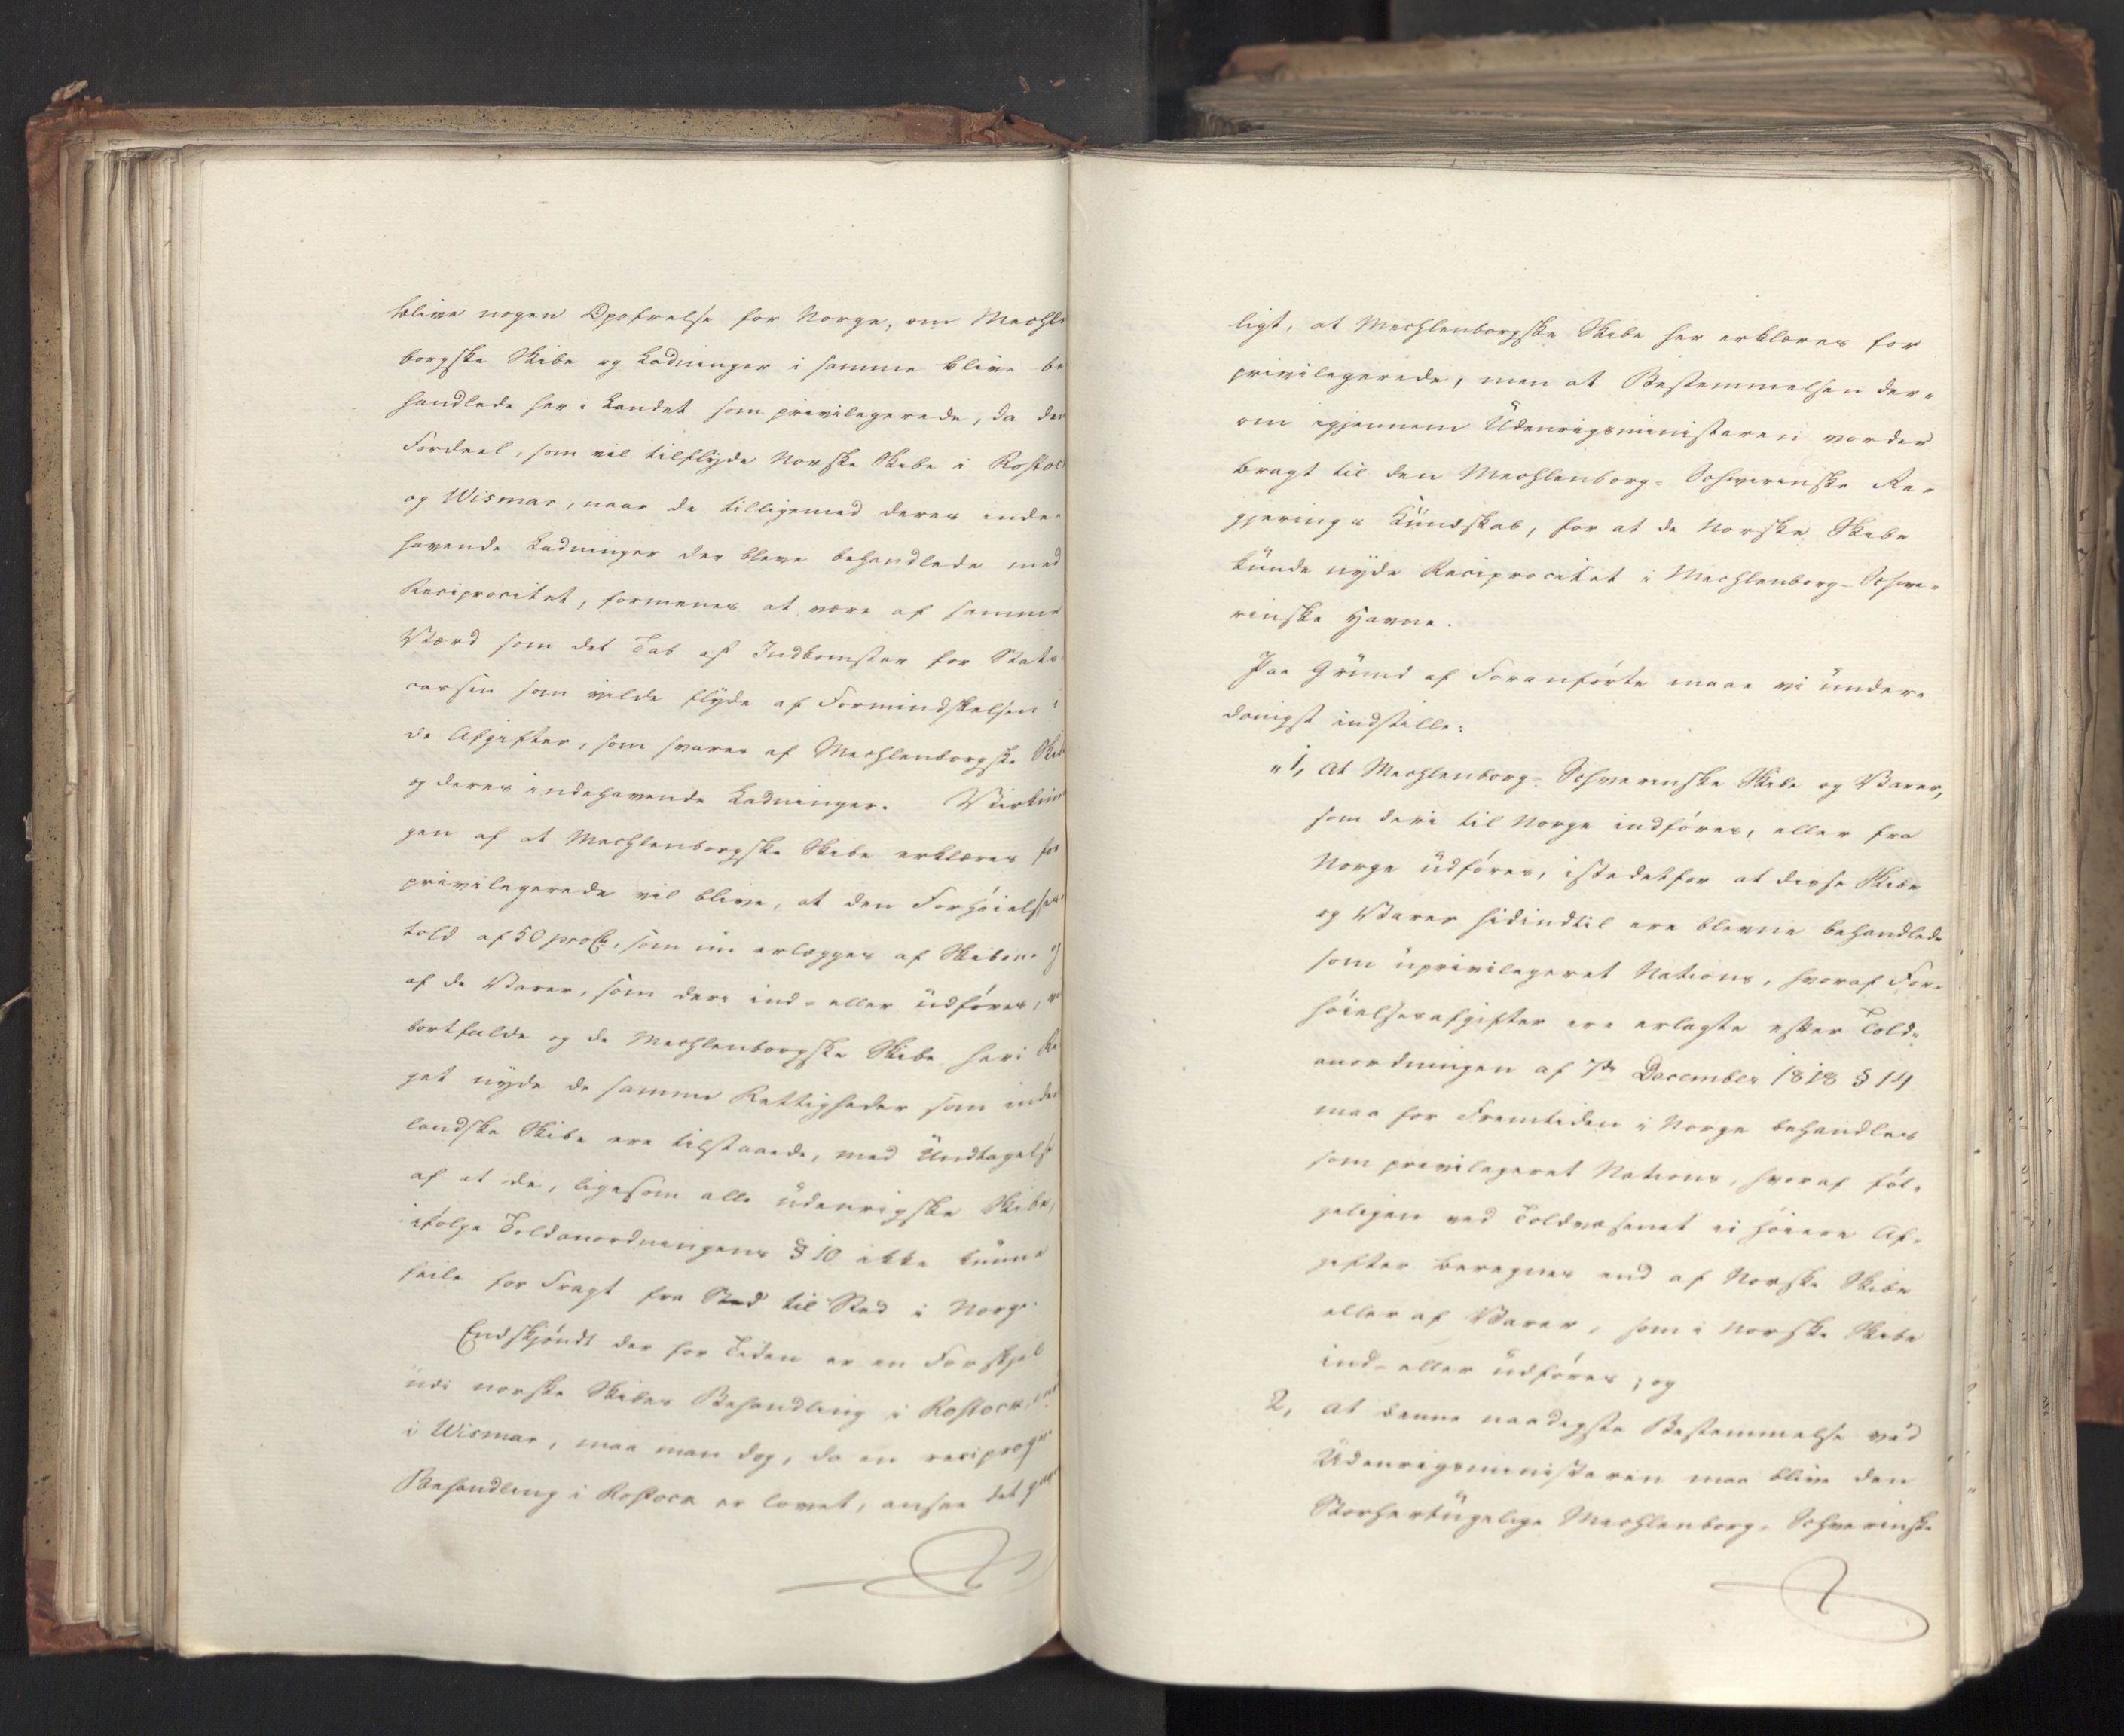 blive nogen Opofrelse for Norge, om Mechle
borgske Skibe og Ladninger i samme blive be
handlede her i Landet som privilegerede, da den
Fordeel, som vil tilflyde Norske Skibe i Rostoc
og Wismar, naar de tilligemed deres inde-
havende Ladninger der bleve behandlede med
Reciprocitet, formenes at være af samme
Værd som det Tab af Indkomster for Stats
cassen som vilde flyde af Formindskelsen i
de Afgifter, som svares af Mechlenborgske Skib
og deres indehavende Ladninger. Virknin
gen af at Mechlenborgske Skibe erklæres for
privilegerede vil blive, at den Forhöielses
told af 50 proCt, som nu erlægges af Skibene og
af de Varer, som deri ind- eller udföres, vi
bortfalde og de Mechlenborgske Skibe her i Ri
get nyde de samme Rettigheder som inden
landske Skibe ere tilstaaede, med Undtagelse
af at de, ligesom alle udenrigske Skibe,
ifölge Toldanordningens § 10 ikke kunne
seile for Fragt fra Sted til Sted i Norge.
Endskjöndt der for Tiden er en Forskjel
udi norske Skibes Behandling i Rostock, og
i Wismar, maa man dog, da en reciproque
Behandling i Rostock er lovet, ansee det gavn
ligt, at Mechlenborgske Skibe her erklæres for
privilegerede, men at Bestemmelsen der-
om igjennem Udenrigsministeren vorder
bragt til den Mechlenborg-Schwerinske Re-
gjerings Kundskab, for at de Norske Skibe
kunde nyde Reciprocitet i Mechlenborg-Schwe-
rinske Havne.
Paa Grund af Foranförte maae vi under-
danigst indstille:
"1, At Mechlenborg-Schwerinske Skibe og Varer,
som deri til Norge indföres, eller fra
Norge udföres, istedetfor at disse Skibe
og Varer hidindtil ere blevne behandlede
som uprivilegeret Nations, hvoraf For-
höielsesafgifter ere erlagte efter Told-
anordningen af 7de December 1818 § 14
maa for Fremtiden i Norge behandles
som privilegeret Nations, hvoraf föl-
geligen ved Toldvæsenet ei höiere Af-
gifter beregnes end af Norske Skibe
eller af Varer, som i Norske Skibe
ind- eller udföres; og
2, at denne naadigste Bestemmelse ved
Udenrigsministeren maa blive den
Storhertugelige Mechlenborg-Schwerinske